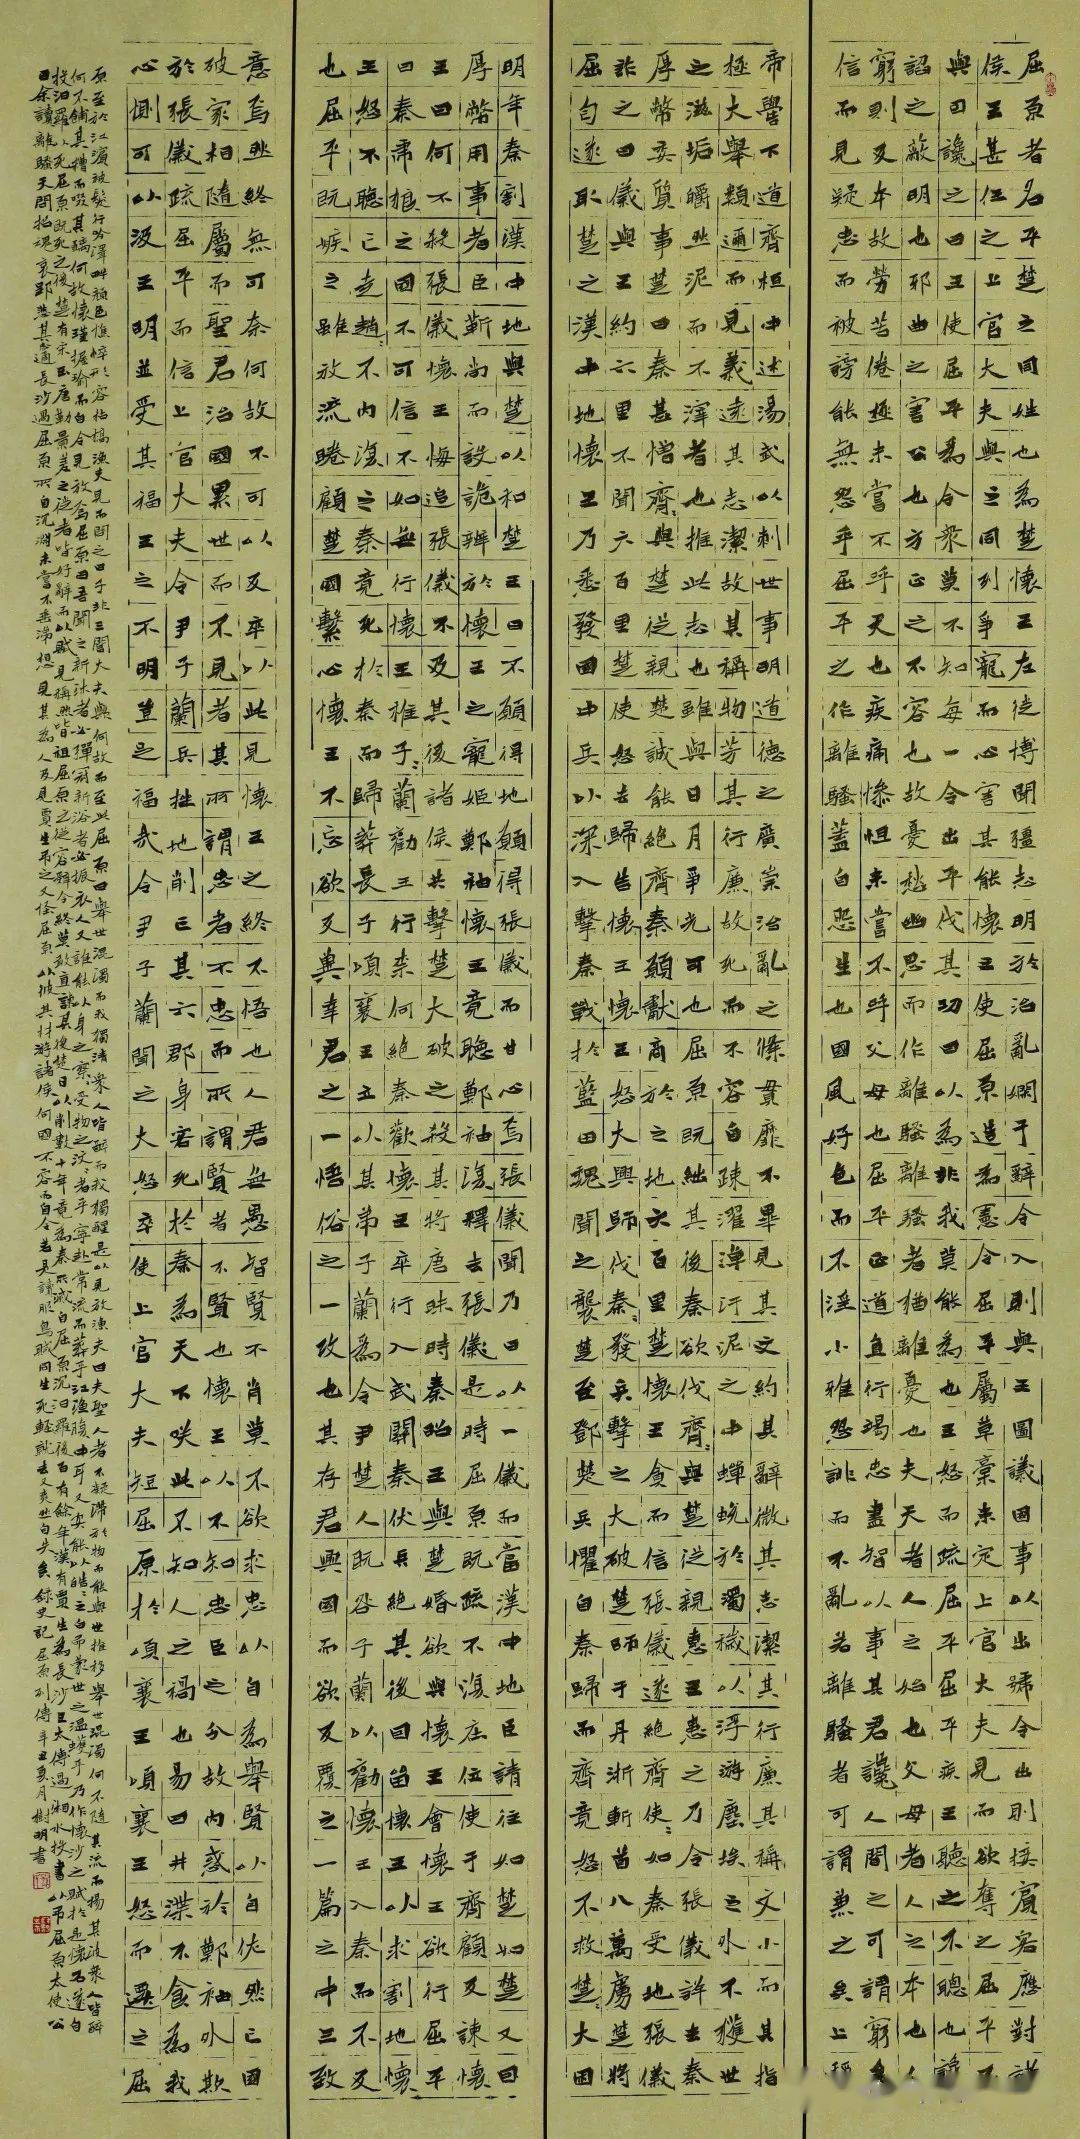 屈原者名平楚之同姓也為楚懷王左徒博聞彊志明於治亂嫻于辭令入則與王圖議國事以出號令出則接賓客應對諸
侯王甚任之上官大夫與之同列爭寵而心害其能懷王使屈原造為憲令屈平屬草稾未定上官大夫見而欲奪之屈平不
與因讒之曰王使屈平為令衆莫不知每一令出平伐其功曰以為非我莫能為也王怒而疏屈平屈平疾王聽之不聰也讒
諂之蔽明也邪曲之害公也方正之不容也故憂愁幽思而作離騷離騷者猶離憂也夫天者人之始也父母者人之本也人
窮則反本故勞苦倦極未嘗不呼天也疾痛慘怛未嘗不呼父母也屈平正道直行竭忠盡智以事其君讒人間之可謂窮矣
信而見疑忠而被謗能無怨乎屈平之作離騷蓋自怨生也國風好色而不淫小雅怨誹而不亂若離騷者可謂兼之矣上稱
帝嚳下道齊桓中述湯武以刺世事明道德之廣崇治亂之條貫靡不畢見其文約其辭微其志潔其行廉其稱文小而其指
極大舉類邇而見義遠其志潔故其稱物芳其行廉故死而不容自疎濯淖汙泥之中蟬蛻於濁穢以浮游塵埃之外不獲世
之滋垢皭然泥而不滓者也推此志也雖與日月爭光可也屈原既絀其後秦欲伐齊齊與楚從親惠王患之乃令張儀詳去秦
厚幣委質事楚曰秦甚憎齊齊與楚從親楚誠能絕齊秦願獻商於之地六百里楚懷王貪而信張儀遂絕齊使使如秦受地張儀
詐之曰儀與王約六里不聞六百里楚使怒去歸告懷王懷王怒大興師伐秦秦發兵擊之大破楚師于丹淅斬首八萬虜楚將
屈匄遂取楚之漢中地懷王乃悉發國中兵以深入擊秦戰於藍田魏聞之襲楚至鄧楚兵懼自秦歸而齊竟怒不救楚楚大困
明年秦割漢中地與楚以和楚王曰不願得地願得張儀而甘心焉張儀聞乃曰以一儀而當漢中地臣請往如楚如楚又因
厚幣用事者臣靳尚而設詭辨於懷王之寵姬鄭袖懷王竟聽鄭袖復釋去張儀是時屈原既疏不復在位使于齊顧反諫懷
王曰何不殺張儀懷王悔追張儀不及其後諸侯共擊楚大破之殺其將唐眛時秦昭王與楚婚欲與懷王會懷王欲行屈平
曰秦虎狼之國不可信不如無行懷王稚子子蘭勸王行柰何絕秦歡懷王卒行入武關秦伏兵絕其後因留懷王以求割地懷
王怒不聽亡走趙趙不內復之秦竟死於秦而歸葬長子頃襄王立以其弟子蘭為令尹楚人既咎子蘭以勸懷王入秦而不反
也屈平既嫉之雖放流睠顧楚國繫心懷王不忘欲反冀幸君之一悟俗之一改也其存君興國而欲反覆之一篇之中三致
意焉然終無可奈何故不可以反卒以此見懷王之終不悟也人君無愚智賢不肖莫不欲求忠以自為舉賢以自佐然亡國
破家相隨屬而聖君治國累世而不見者其所謂忠者不忠而所謂賢者不賢也懷王以不知忠臣之分故內惑於鄭袖外欺
於張儀疏屈平而信上官大夫令尹子蘭兵挫地削亡其六郡身客死於秦為天下咲此不知人之禍也易曰井渫不食為我
心惻可以汲王明並受其福王之不明豈足福哉令尹子蘭聞之大怒卒使上官大夫短屈原於頃襄王頃襄王怒而遷之屈
原至於江濱被髮行吟澤畔顏色憔悴形容枯槁漁父見而問之曰子非三閭大夫與何故而至此屈原曰舉世混濁而我獨清衆人皆醉而我獨醒是以見放漁父曰夫聖人者不凝滯於物而能與世推移舉世混濁何不隨其流而揚其波衆人皆醉
何不餔其糟而啜其醨何故懷瑾握瑜而自令見放為屈原曰吾聞之新沐者必彈冠新浴者必振衣人又誰能以身之察察受物之汶汶者乎寧赴常流而葬乎江漁腹中耳又安能以皓皓之白而蒙世之溫蠖乎乃作懷沙之賦於是懷石遂自
投汨羅以死屈原既死之後楚有宋玉唐勒景差之徒者皆好辭而以賦見稱然皆祖屈原之從容辭令終莫敢直諫其後楚日以削數十年竟為秦所滅自屈原沉汨羅後百有餘年漢有賈生為長沙王太傅過湘水投書以弔屈原太史公
曰余讀離騷天問招魂哀郢悲其志適長沙過屈原所自沉淵未嘗不垂涕想見其為人及見賈生弔之又怪屈原以彼其材游諸侯何國不容而自令若是讀服鳥賦同生死輕就去又爽然自失矣錄史記屈原列傳辛丑夏月樹明書